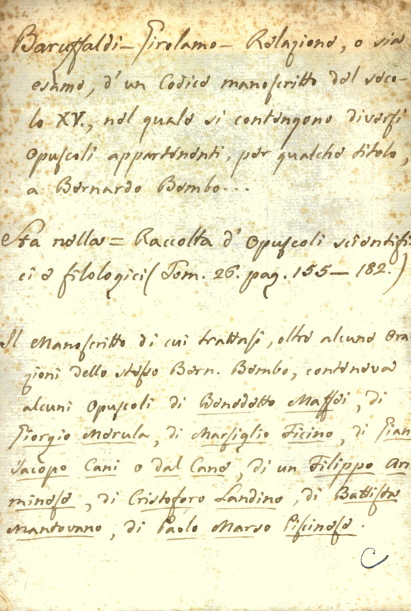 Baruffaldi – Girolamo – Relazione, o sia
esame, d'un Codice manoscritto del seco-
lo XV., nel quale si contengono diversi
opuscoli appartenenti, per qualche titolo,
a Bernardo Bembo...
Sta nella = Raccolta d'opuscoli scientifi-
ci e filologici (Tom. 26. pag. 155–182.)
Il Manoscritto di cui trattasi, oltre alcune ora-
zioni dello stesso Bern. Bembo, conteneva
alcuni opuscoli di Benedetto Maffei, di
Giorgio Merula, di Marsiglio Ficino, di Gian
Jacopo Cani o dal Cane, di un Filippo Ari-
minese, di Cristoforo Landino, di Battista
Mantovano, di Paolo Marso Piscinese.
C